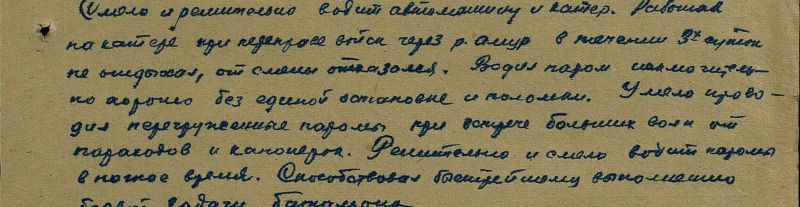 Смело и решительно водит автомашину и катер. Работая
на катере при переправе войск через р. Амур в течении 3х суток
не отдыхал, от смены отказался. Водил паром исключитель-
но хорошо без единой остановке и поломки. Умело прово-
дил перегруженные паромы при встрече больших волн от
пароходов и канонерок. Решительно и смело водит паромы
в ночное время. Способствовал быстрейшему выполнению
боевой задачи батальона